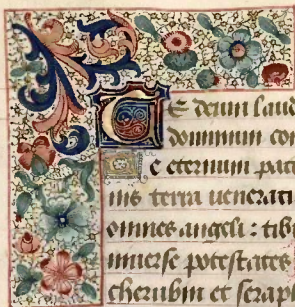 TE deum laud
dominum con
Te eternum pat
nis terra uenerati
omnes angeli: tibi
iuerse potestates
cherubin et seraph